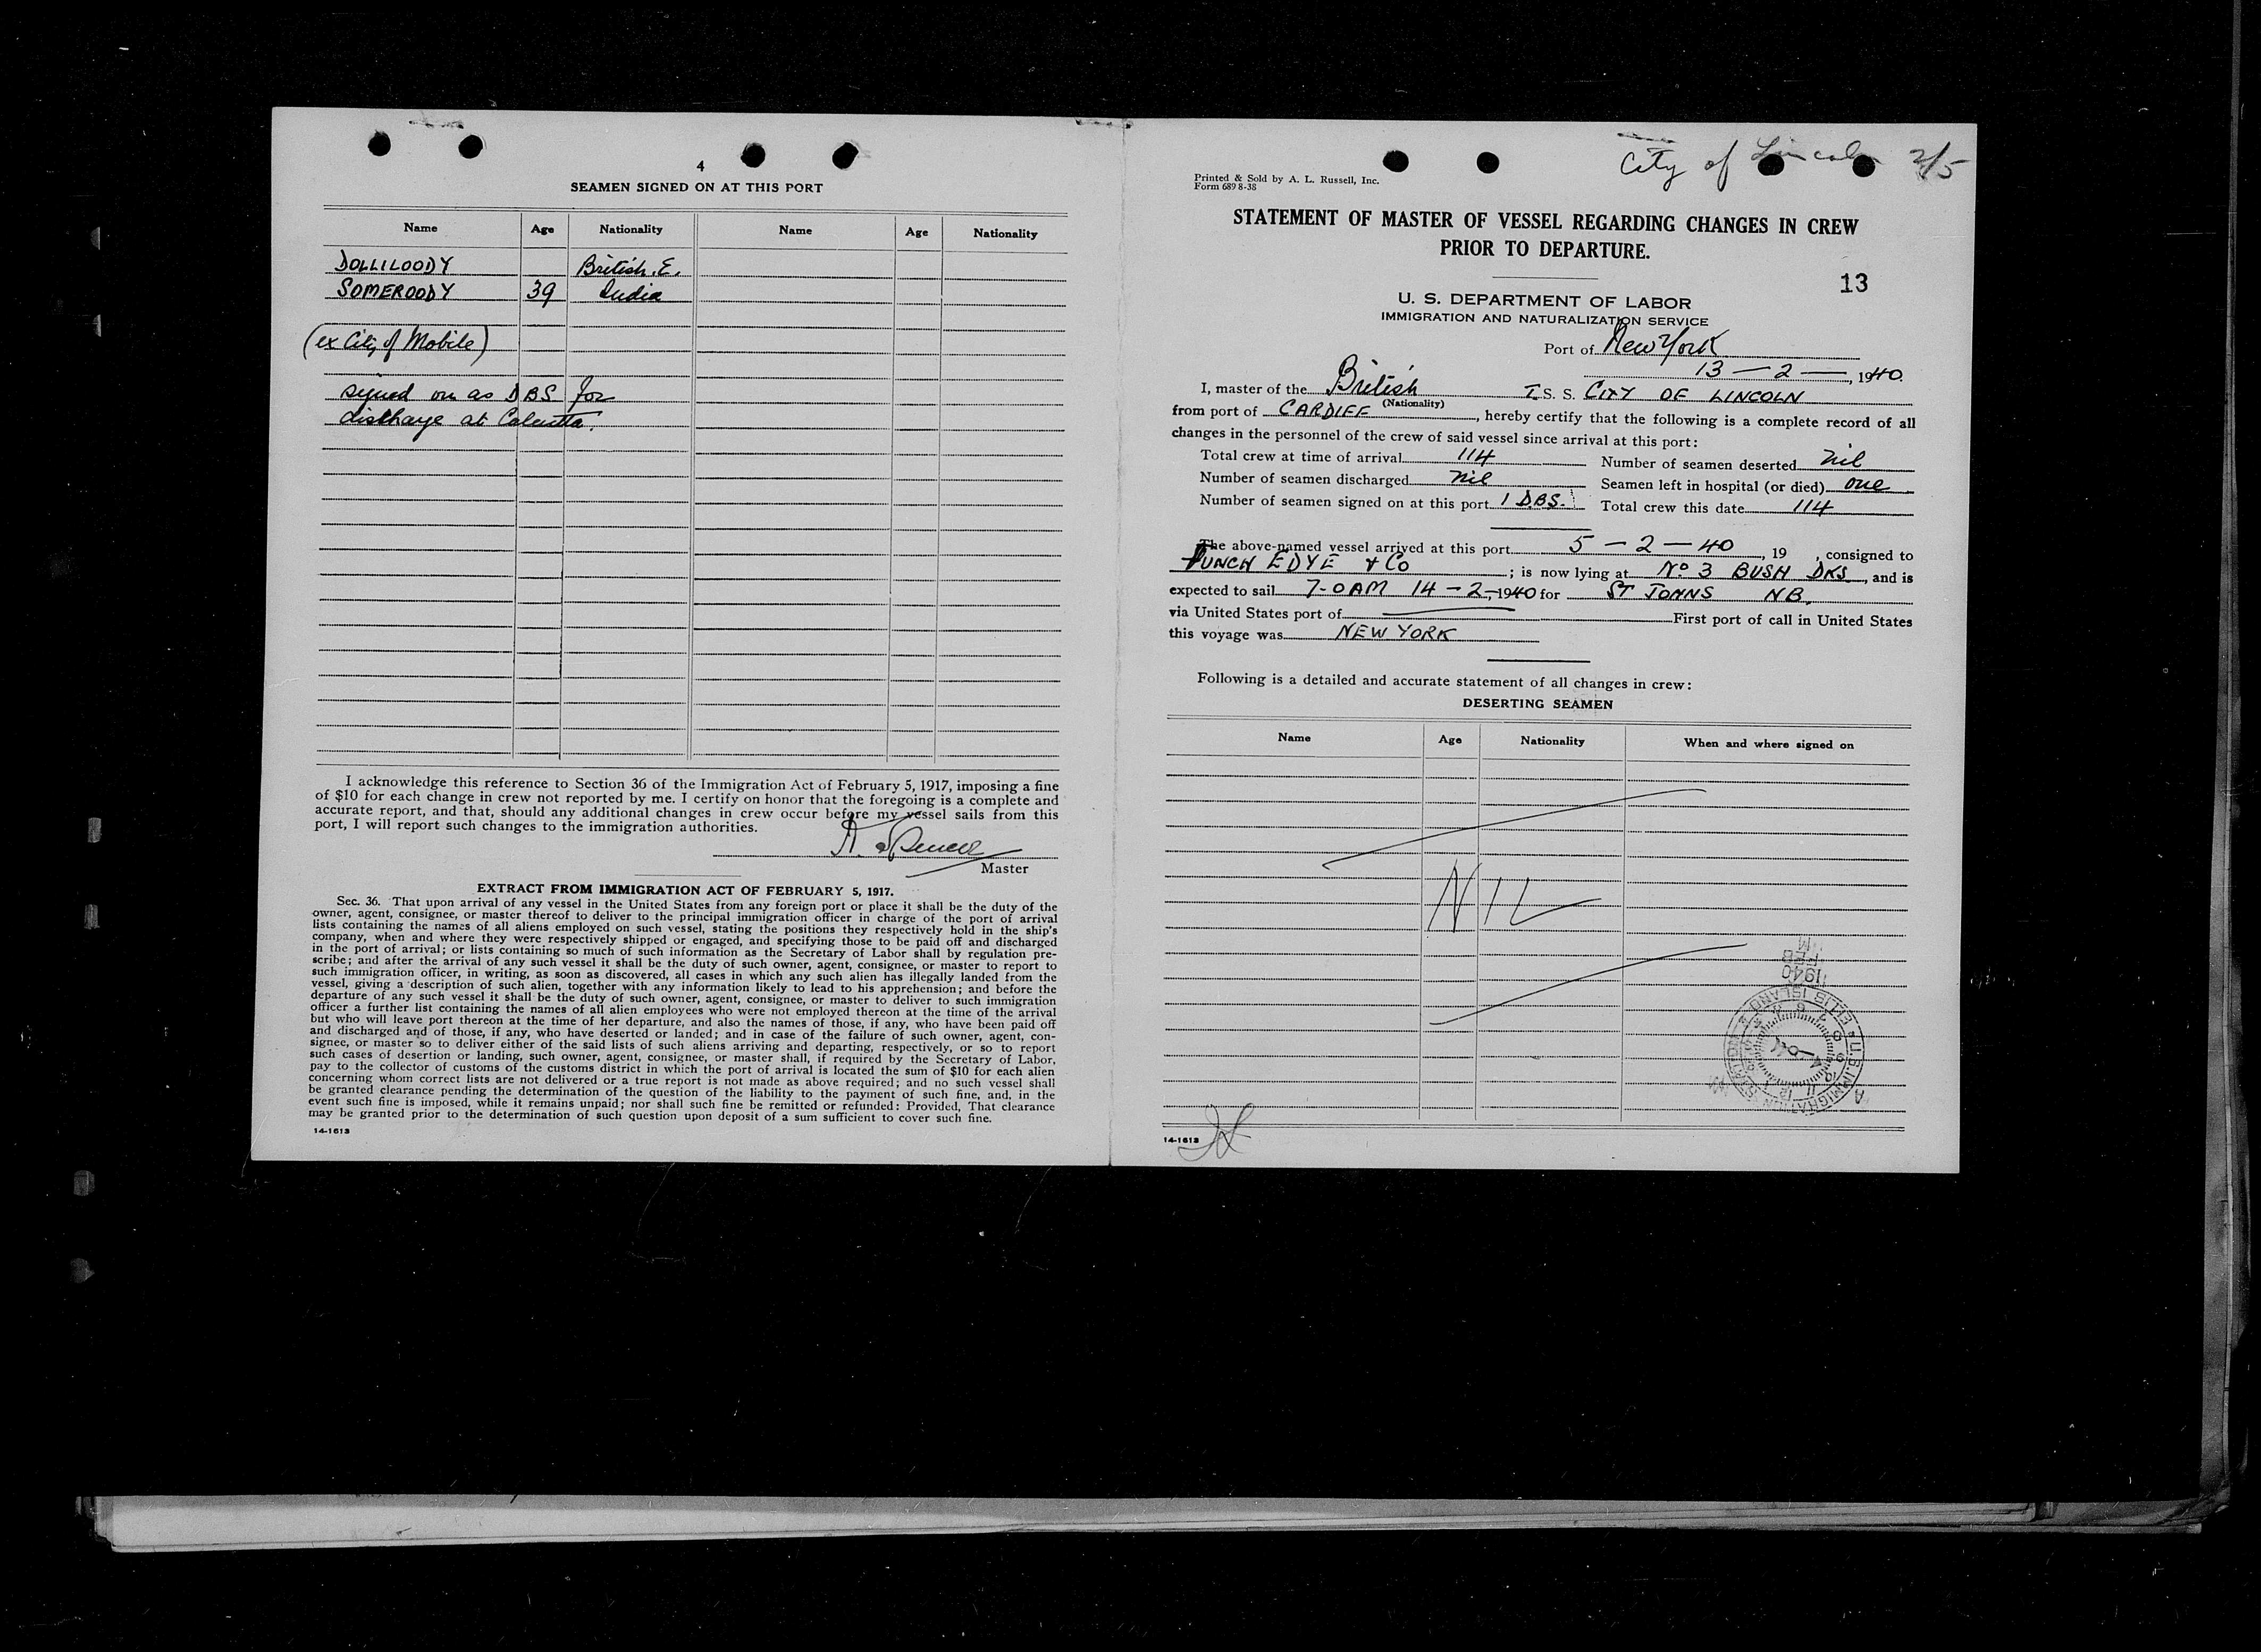 4
SEAMEN SIGNED ON AT THIS PORT
Name Age Nationality Name Age Nationality
DOLLILOODY British. E.
SOMEROODY 39 India
(ex City of Mobile)
signed on as DBS for
discharge at Calcutta.
I acknowledge this reference to Section 36 of the Immigration Act of February 5, 1917, imposing a fine
of $10 for each change in crew not reported by me. I certify on honor that the foregoing is a complete and
accurate report, and that, should any additional changes in crew occur before my vessel sails from this
port, I will report such changes to the immigration authorities.
Master
EXTRACT FROM IMMIGRATION ACT OF FEBRUARY 5, 1917.
Sec. 36. That upon arrival of any vessel in the United States from any foreign port or place it shall be the duty of the
owner, agent, consignee, or master thereof to deliver to the principal immigration officer in charge of the port of arrival
lists containing the names of all aliens employed on such vessel, stating the positions they respectively hold in the ship's
company, when and where they were respectively shipped or engaged, and specifying those to be paid off and discharged
in the port of arrival; or lists containing so much of such information as the Secretary of Labor shall by regulation pre-
scribe; and after the arrival of any such vessel it shall be the duty of such owner, agent, consignee, or master to report to
such immigration officer, in writing, as soon as discovered, all cases in which any such alien has illegally landed from the
vessel, giving a description of such alien, together with any information likely to lead to his apprehension; and before the
departure of any such vessel it shall be the duty of such owner, agent, consignee, or master to deliver to such immigration
officer a further list containing the names of all alien employees who were not employed thereon at the time of the arrival
but who will leave port thereon at the time of her departure, and also the names of those, if any, who have been paid off
and discharged and of those, if any, who have deserted or landed; and in case of the failure of such owner, agent, con-
signee, or master so to deliver either of the said lists of such aliens arriving and departing, respectively, or so to report
such cases of desertion or landing, such owner, agent, consignee, or master shall, if required by the Secretary of Labor,
pay to the collector of customs of the customs district in which the port of arrival is located the sum of $10 for each alien
concerning whom correct lists are not delivered or a true report is not made as above required; and no such vessel shall
be granted clearance pending the determination of the question of the liability to the payment of such fine, and, in the
event such fine is imposed, while it remains unpaid; nor shall such fine be remitted or refunded: Provided, That clearance
may be granted prior to the determination of such question upon deposit of a sum sufficient to cover such fine.
14-1613
City of Lincoln 2/5
Printed & Sold by A. L. Russell, Inc.
Form 689 8-38
STATEMENT OF MASTER OF VESSEL REGARDING CHANGES IN CREW
PRIOR TO DEPARTURE.
13
U. S. DEPARTMENT OF LABOR
IMMIGRATION AND NATURALIZATION SERVICE
Port of New York
13 - 2 - , 1940.
I, master of the British T.S. S. CITY OF LINCOLN
(Nationality)
from port of CARDIFF, hereby certify that the following is a complete record of all
changes in the personnel of the crew of said vessel since arrival at this port:
Total crew at time of arrival 114 Number of seamen deserted nil
Number of seamen discharged nil Seamen left in hospital (or died) one
Number of seamen signed on at this port 1 D.B.S. Total crew this date 114
The above-named vessel arrived at this port 5 - 2 - 40, 19 , consigned to
FUNCH EDYE & Co; is now lying at No 3 BUSH DKS, and is
expected to sail 7-0 AM 14 - 2 -, 1940 for ST JOHNS NB.
via United States port of First port of call in United States
this voyage was NEW YORK
Following is a detailed and accurate statement of all changes in crew:
DESERTING SEAMEN
Name Age Nationality When and where signed on
NIL
1940 FEB
U.S. IMMIGRATION STATION ELLIS ISLAND
14-1613